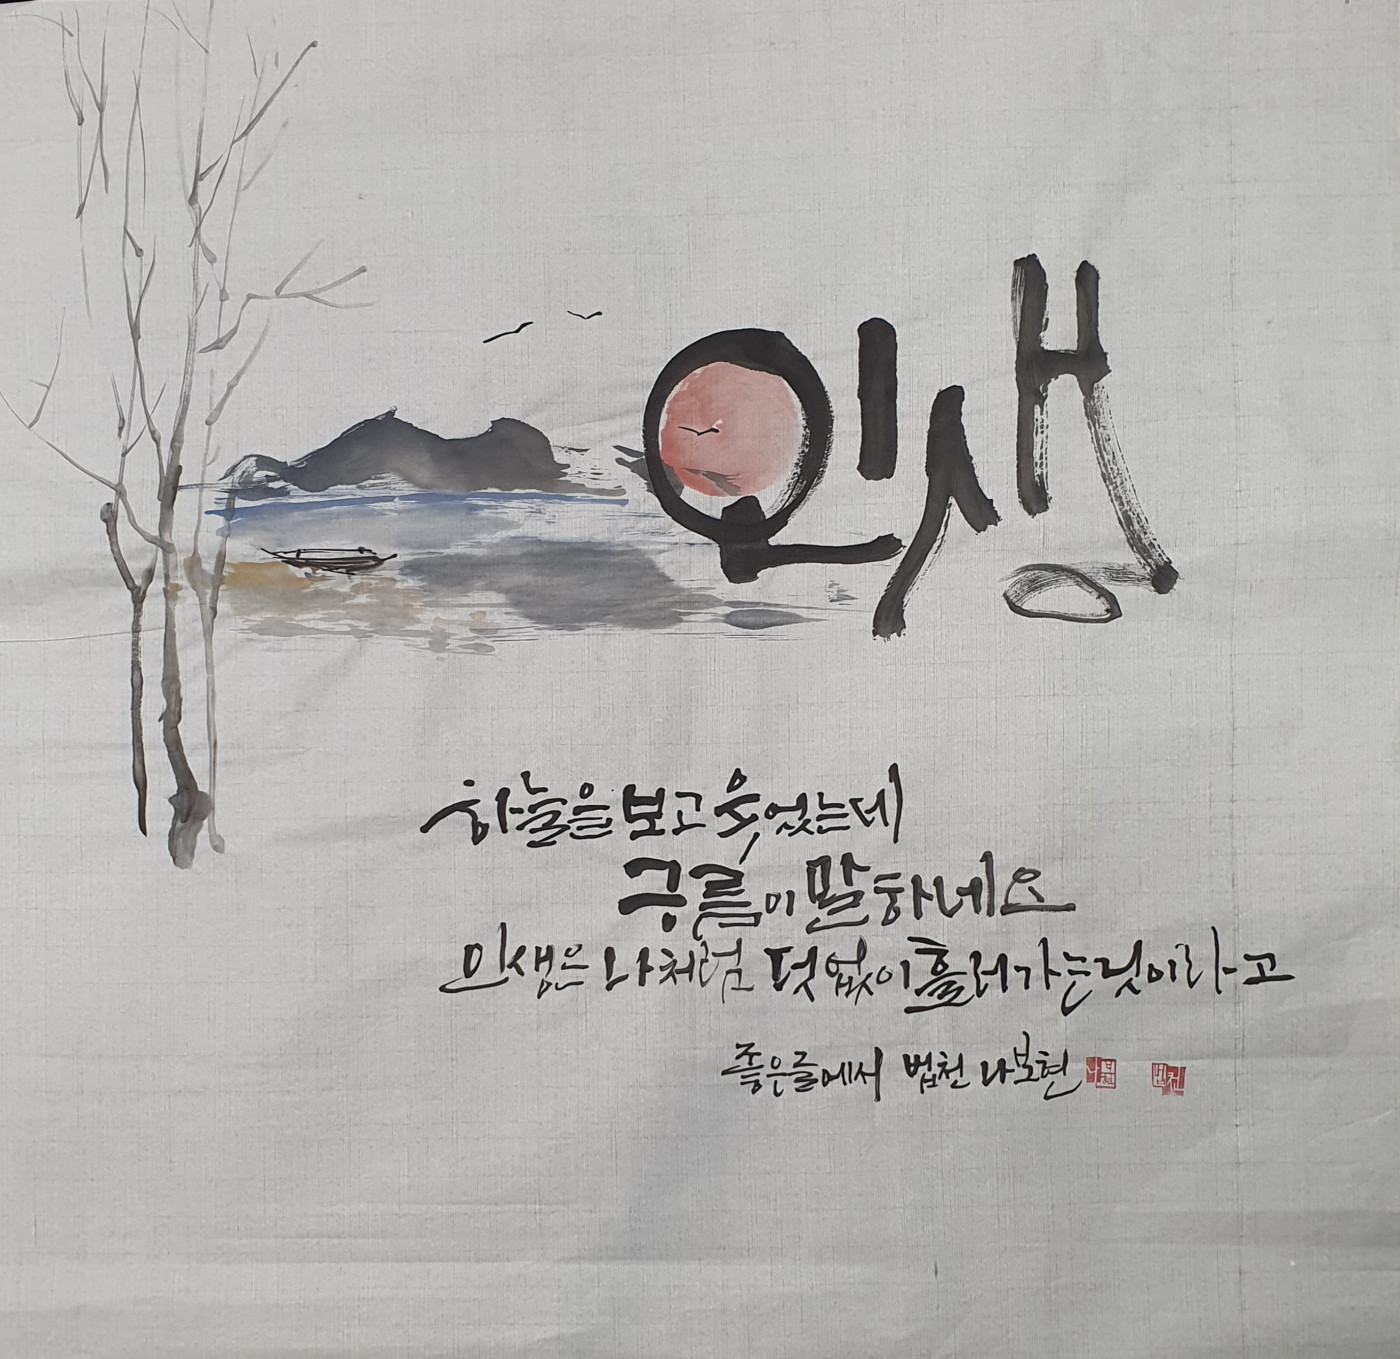 인생
하늘을 보고 웃었는데
구름이 말하네요
인생은 나처럼 덧없이 흘러가는 것이라고
좋은글에서 법천 나보현
나보현 법천